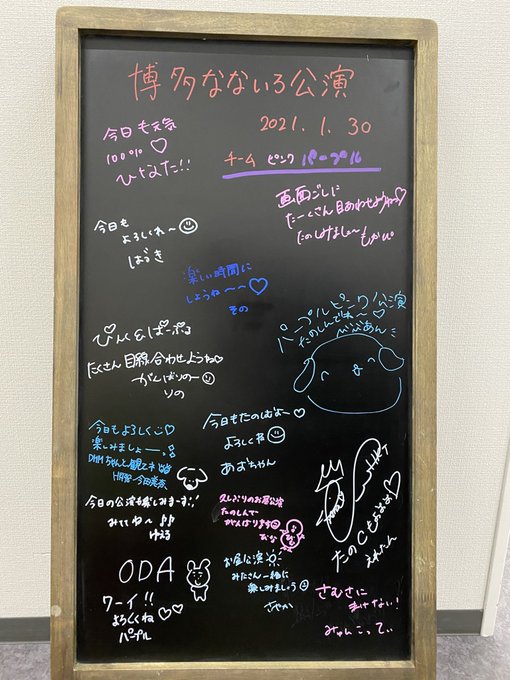 博多なないろ公演
2021.1.30
チーム ピンク パープル
今日も元気
100%♡
ひなた!!
画面ごしに
たーくさん目あわせようねっ♡
たのしみましょ〜
もかぴ
今日も
よろしくね〜
はづき
楽しい時間に
しようね〜〜♡
その
ぴんく&ぱーぷる
たくさん目線合わせようね♡
がんばりのー
りの
パープルピンク公演
たのしんでね〜♡
びびあん
今日もよろしく♡
楽しみましょー!
DMMちゃんと観てネ
HKT48 今田美奈
今日もたのしむよー♡
よろしくね
あおちゃん
今日の公演も楽しみまーす!!
みててね〜♪♪
ゆうる
久しぶりのお昼公演
たのしんで
がんばります
おな
たのしもうねぇ♡
えれたん
ODA
ワーイ!!
よろしくね
パープル
お昼公演
みなさん一緒に
楽しみましょう
さやか
さむさに
まけない!
みゅんこってぃ